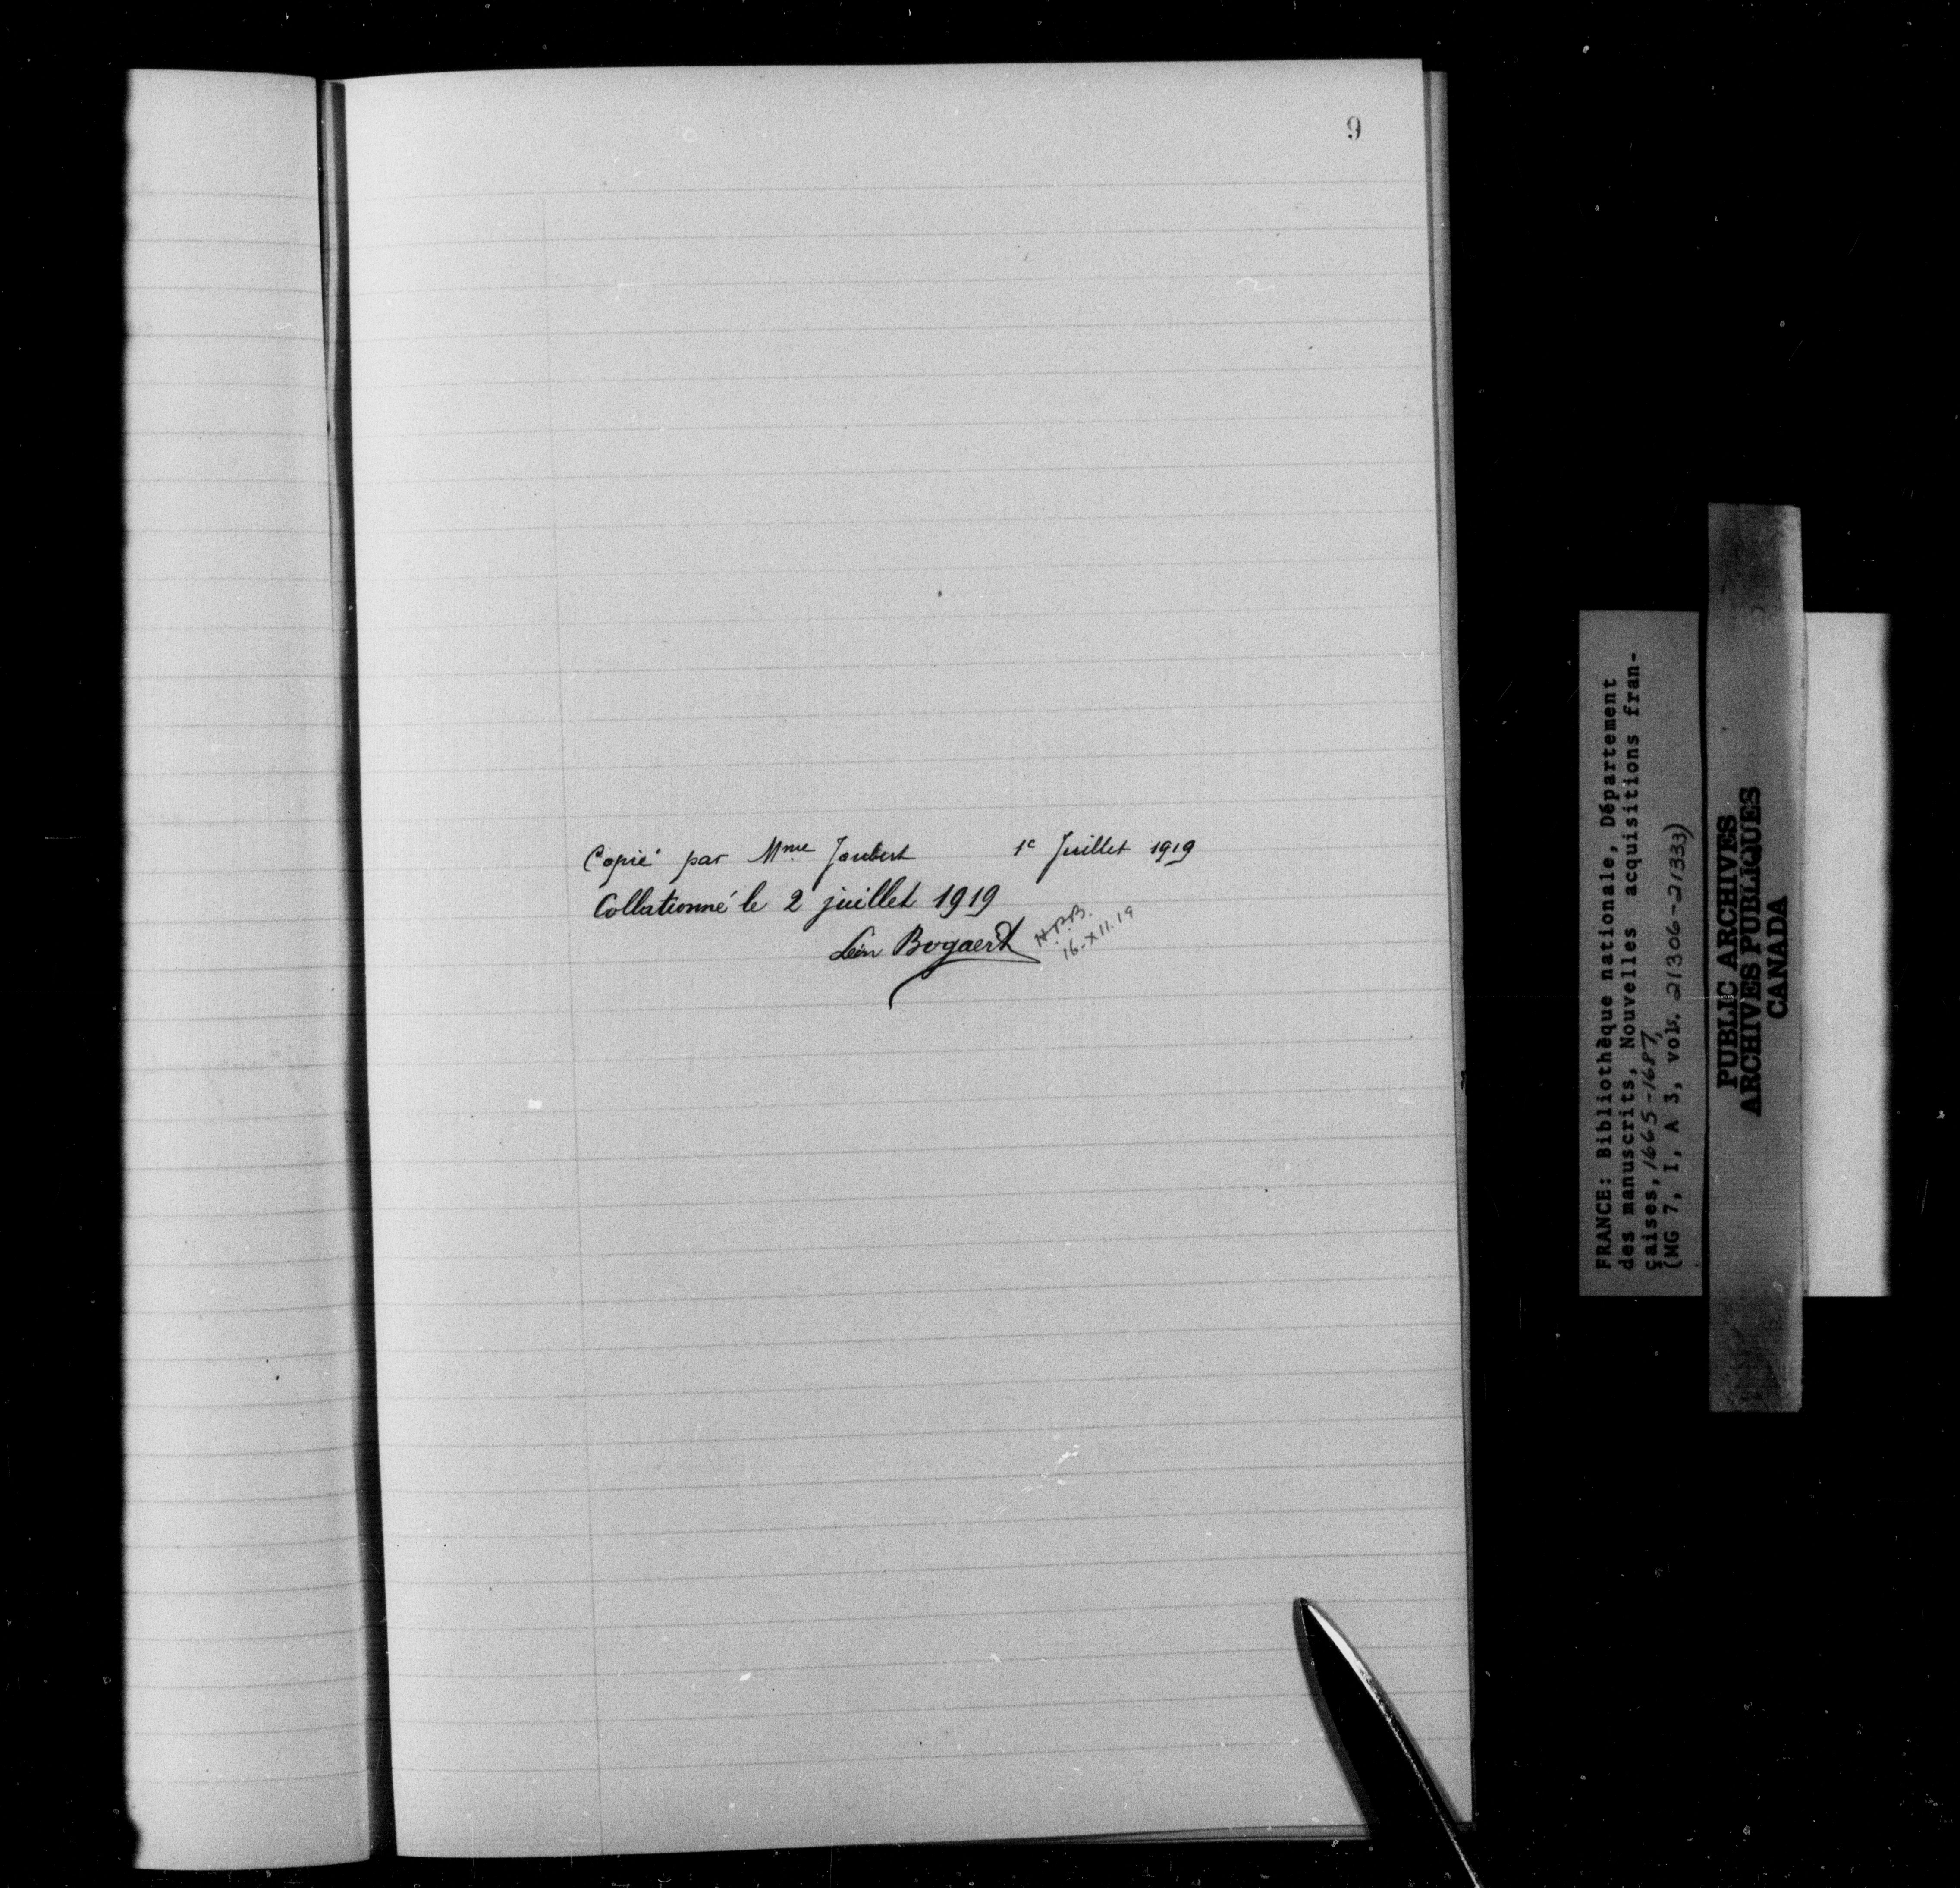 9
Copié par Mme Joubert 1e Juillet 1919
Collationné le 2 juillet 1919
Léon Bogaert
H.P.B.
16.XII.19
FRANCE: Bibliothèque nationale, Département
des manuscrits, Nouvelles acquisitions fran-
çaises, 1665-1687,
(MG 7, I, A 3, vols. 21306-21333)
PUBLIC ARCHIVES
ARCHIVES PUBLIQUES
CANADA